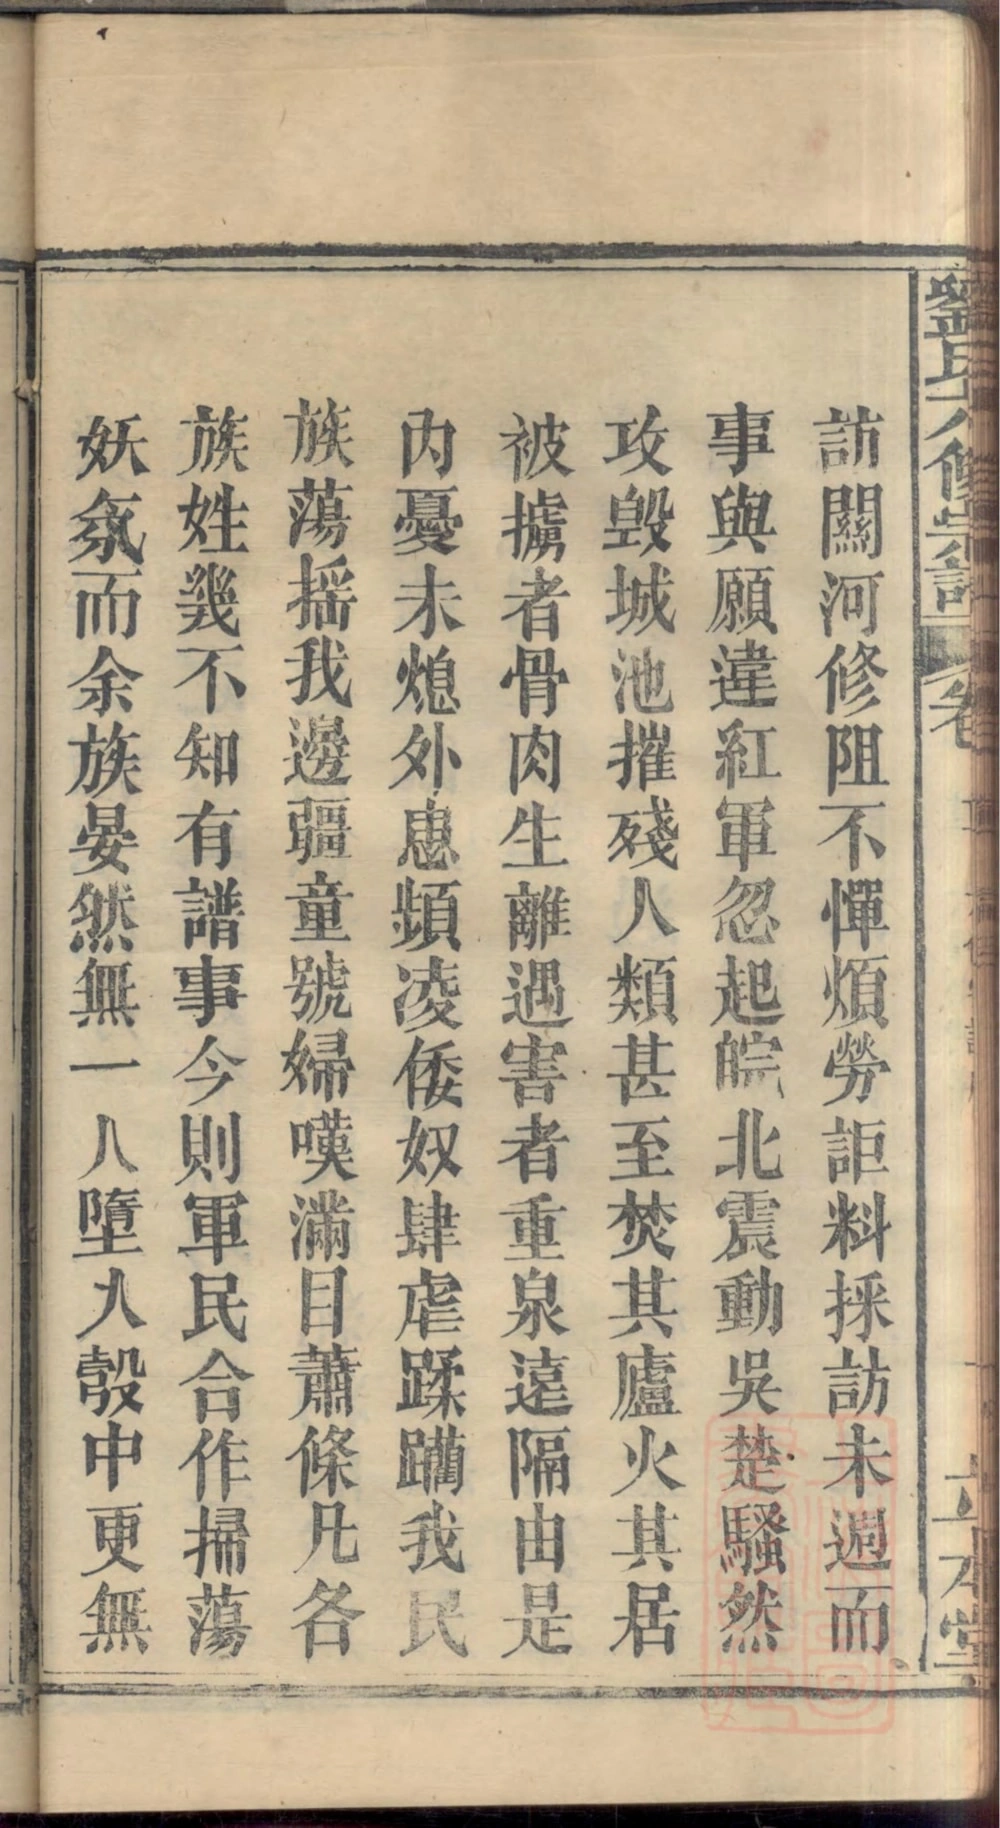 劉氏六修宗譜
卷
立本堂
訪關河修阻不憚煩勞詎料採訪未週而
事與願違紅軍忽起皖北震動吳楚騷然
攻毀城池摧殘人類甚至焚其廬火其居
被擄者骨肉生離遇害者重泉遠隔由是
內憂未熄外患頻凌倭奴肆虐蹂躪我民
族蕩搖我邊疆童號婦嘆滿目蕭條凡各
族姓幾不知有譜事今則軍民合作掃蕩
妖氛而余族晏然無一人墮入彀中更無